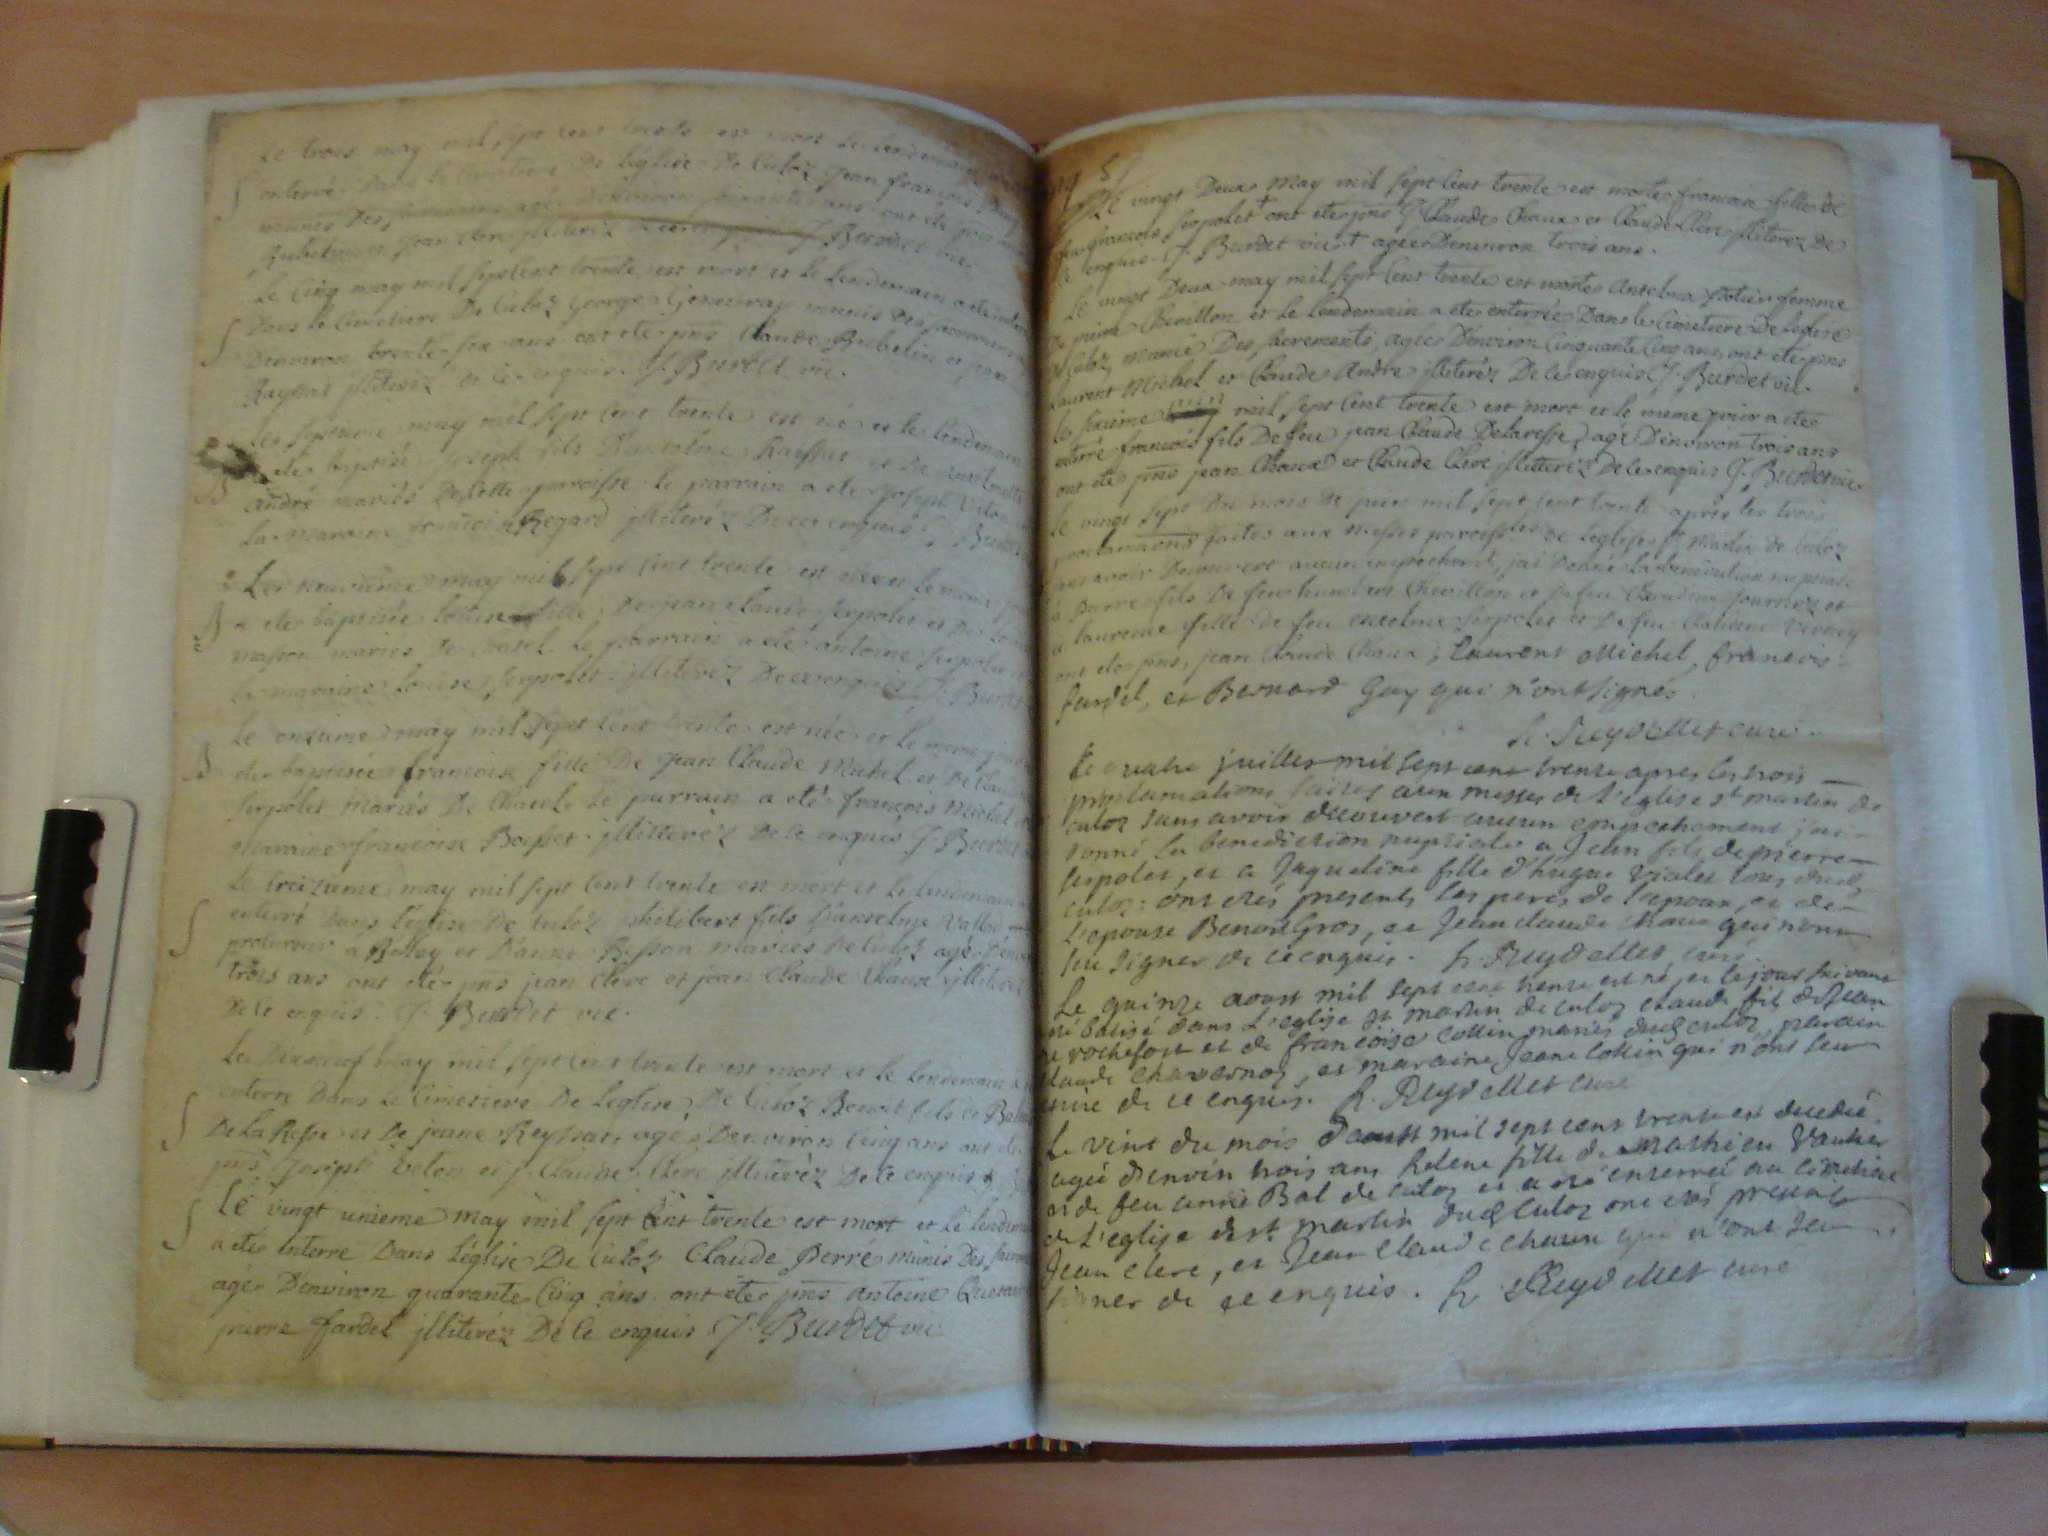 Le trois may mil sept cent trente est mort et le lendemain a
enterré Dans le Cimetiere De l'église De Culoz Jean françois
munis Des sacremens agé Denviron soixante ans ont été pns
Rubelin et Jean Clerc jlliteréz De ce enquis J. Burdet vic.
Le Cinq may mil sept Cent trente est mort et le Lendemain a ete enterré
Dans le Cimetiere De Culoz George Genevray munis Des sacremens
Denviron trente six ans ont ete pns Claude Rubelin et jean
Raypas jlliteréz De ce enquis. J. Burdet vic.
Le septieme may mil sept Cent trente est né et le lendemain
a ete baptisé Joseph fils D'anselme Raypas et De
andré mariés De Cette paroisse le parrain a ete Joseph
la maraine francoise Regard jlliteréz De ce enquis J. Burdet
Le neuvieme may mil sept Cent trente est née et le meme jour
a ete baptisée louise fille De jean claude serpolet et De
masson mariés De Chatel Le parrain a eté antoine serpolet
la maraine louise serpolet jlliteréz De ce enquis J. Burdet
Le onzieme may mil sept Cent trente est née et le meme jour
ete baptisée francoise fille De Jean Claude Michel et De Claudine
serpolet Mariés De Chatel Le parrain a eté francois Michel
maraine francoise Boisset jlliteréz De ce enquis J. Burdet
Le treizieme may mil sept Cent trente est mort et le lendemain
enterré Dans l'église De Culoz philibert fils D'anselme Vallod
procureur a Belley et D'anne Besson mariés De Culoz agé D'environ
trois ans ont eté pns jean Clerc et jean Claude Chaux jlliteréz
De Ce enquis. J. Burdet vic.
Le Dixneuf may mil sept Cent trente est mort et le Lendemain
enterré Dans le Cimetiere De leglise De Culoz Benoit fils De
De la Resse et De jeane Reypas, agé Denviron Cinq ans ont été
pns Joseph et J. Claude Clerc jlliteréz De ce enquis
Le vingt unieme may mil sept Cent trente est mort et le lendemain
a ete enterré Dans l'église De Culoz Claude Berré munis Des sacremens
agé Denviron quarante Cinq ans ont ete pns antoine
pierre fardel jlliteréz De Ce enquis J. Burdet vic
Le vingt Deux May mil sept Cent trente est morte francoise fille De
françois serpolet + ont ete pns J. Claude Chaux et Claude Clerc jlliteréz De
Ce enquis. J. Burdet vic. + agée Denviron trois ans.
Le vingt Deux may mil sept Cent trente est morte Antelma femme
De pierre Chevillon et le lendemain a ete enterrée Dans le Cimetiere De leglise
De Culoz munie Des sacrements, agée Denviron Cinquante Cinq ans, ont ete pns
Laurent Michel et Claude André jlliteréz De Ce enquis J. Burdet vic.
Le sixieme juin mil sept Cent trente est mort et le meme jour a ete
enterré francois fils De feu jean Claude Delaresse, agé Denviron trois ans
ont eté pns jean Chaux et Claude Clerc jlliteréz De Ce enquis J. Burdet vic.
Le vingt sept Du mois De juin mil sept cent trente après les trois
proclamaons faites aux messes paroissles de l'église St Martin de Culoz
sans avoir Decouvert aucun empechemt, jai Donné la benediction nuptiale
à Pierre fils De feu humbert Chevillon et De feu Claudine Journet et
a laurence fille de feu anselme serpolet et De feu
ont ete pns, jean Claude Chaux, laurent Michel, francois
fardel, et Bernard Guy qui n'ont signés
h. Reydellet curé.
Le quatre juillet mil sept cent trente apres les trois
proclamations faites aux messes de l'eglise st martin de
culoz sans avoir découvert aucun empechement j'ai
donné la benediction nuptiale a Jean fils de pierre
serpolet, et a Jaqueline fille d'hugue vialet tous dudt
culoz: ont étés presents les peres de l'epoux, et de
l'epouse Benoit Gros, et Jean claude chaux qui n'ont
seu signer de ce enquis. h. Reydellet curé.
Le quinze aoust mil sept cent trente est né, et le jour suivant
été batisé dans l'eglise st martin de culoz claude fils de Jean
de rochefort et de françoise collin mariés dudt culoz, parain
claude chavornoz, et maraine Jeane collin qui n'ont seu
ecrire de ce enquis. h. Reydellet curé
Le vint du mois d'aoust mil sept cent trente est decedée
agée d'envin trois ans helene fille de Mathieu Vautier
et de feu anne Bal de culoz et a eté enterrée au cimetiere
de l'eglise de st martin dudt culoz ont etés presents
Jean clerc, et Jean claude chaux qui n'ont seu
signer de ce enquis. h. Reydellet curé